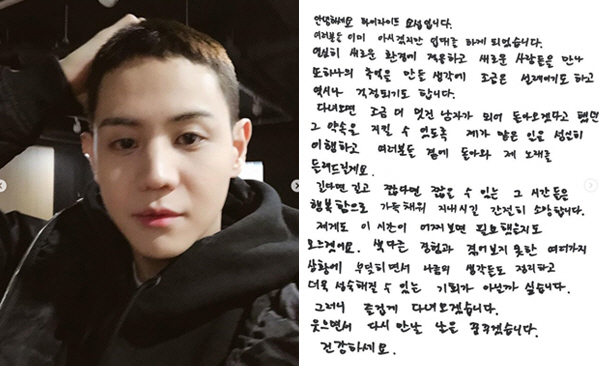 안녕하세요 하이라이트 요섭입니다.
여러분들 이미 아시겠지만 입대를 하게 되었습니다.
열심히 새로운 환경에 적응하고 새로운 사람들을 만나
또하나의 추억을 만들 생각에 조금은 설레이기도 하고
역시나 걱정되기도 합니다.
다녀오면 조금 더 멋진 남자가 되어 돌아오겠다고 했던
그 약속을 지킬 수 있도록 제가 맡은 일을 성실히
이행하고 여러분들 곁에 돌아와 제 노래를
들려드릴게요.
길다면 길고 짧다면 짧을 수 있는 그 시간들은
행복함으로 가득채워 지내시길 간절히 소망합니다.
저에게도 이 시간이 어찌보면 필요했는지도
모르겠어요. 색다른 경험과 겪어보지 못한 여러가지
상황에 부딪히면서 나름의 생각들도 정리하고
더욱 성숙해질 수 있는 기회가 아닌가 싶습니다.
그러니 즐겁게 다녀오겠습니다.
웃으면서 다시 만날 날을 꿈꾸겠습니다.
건강하세요.